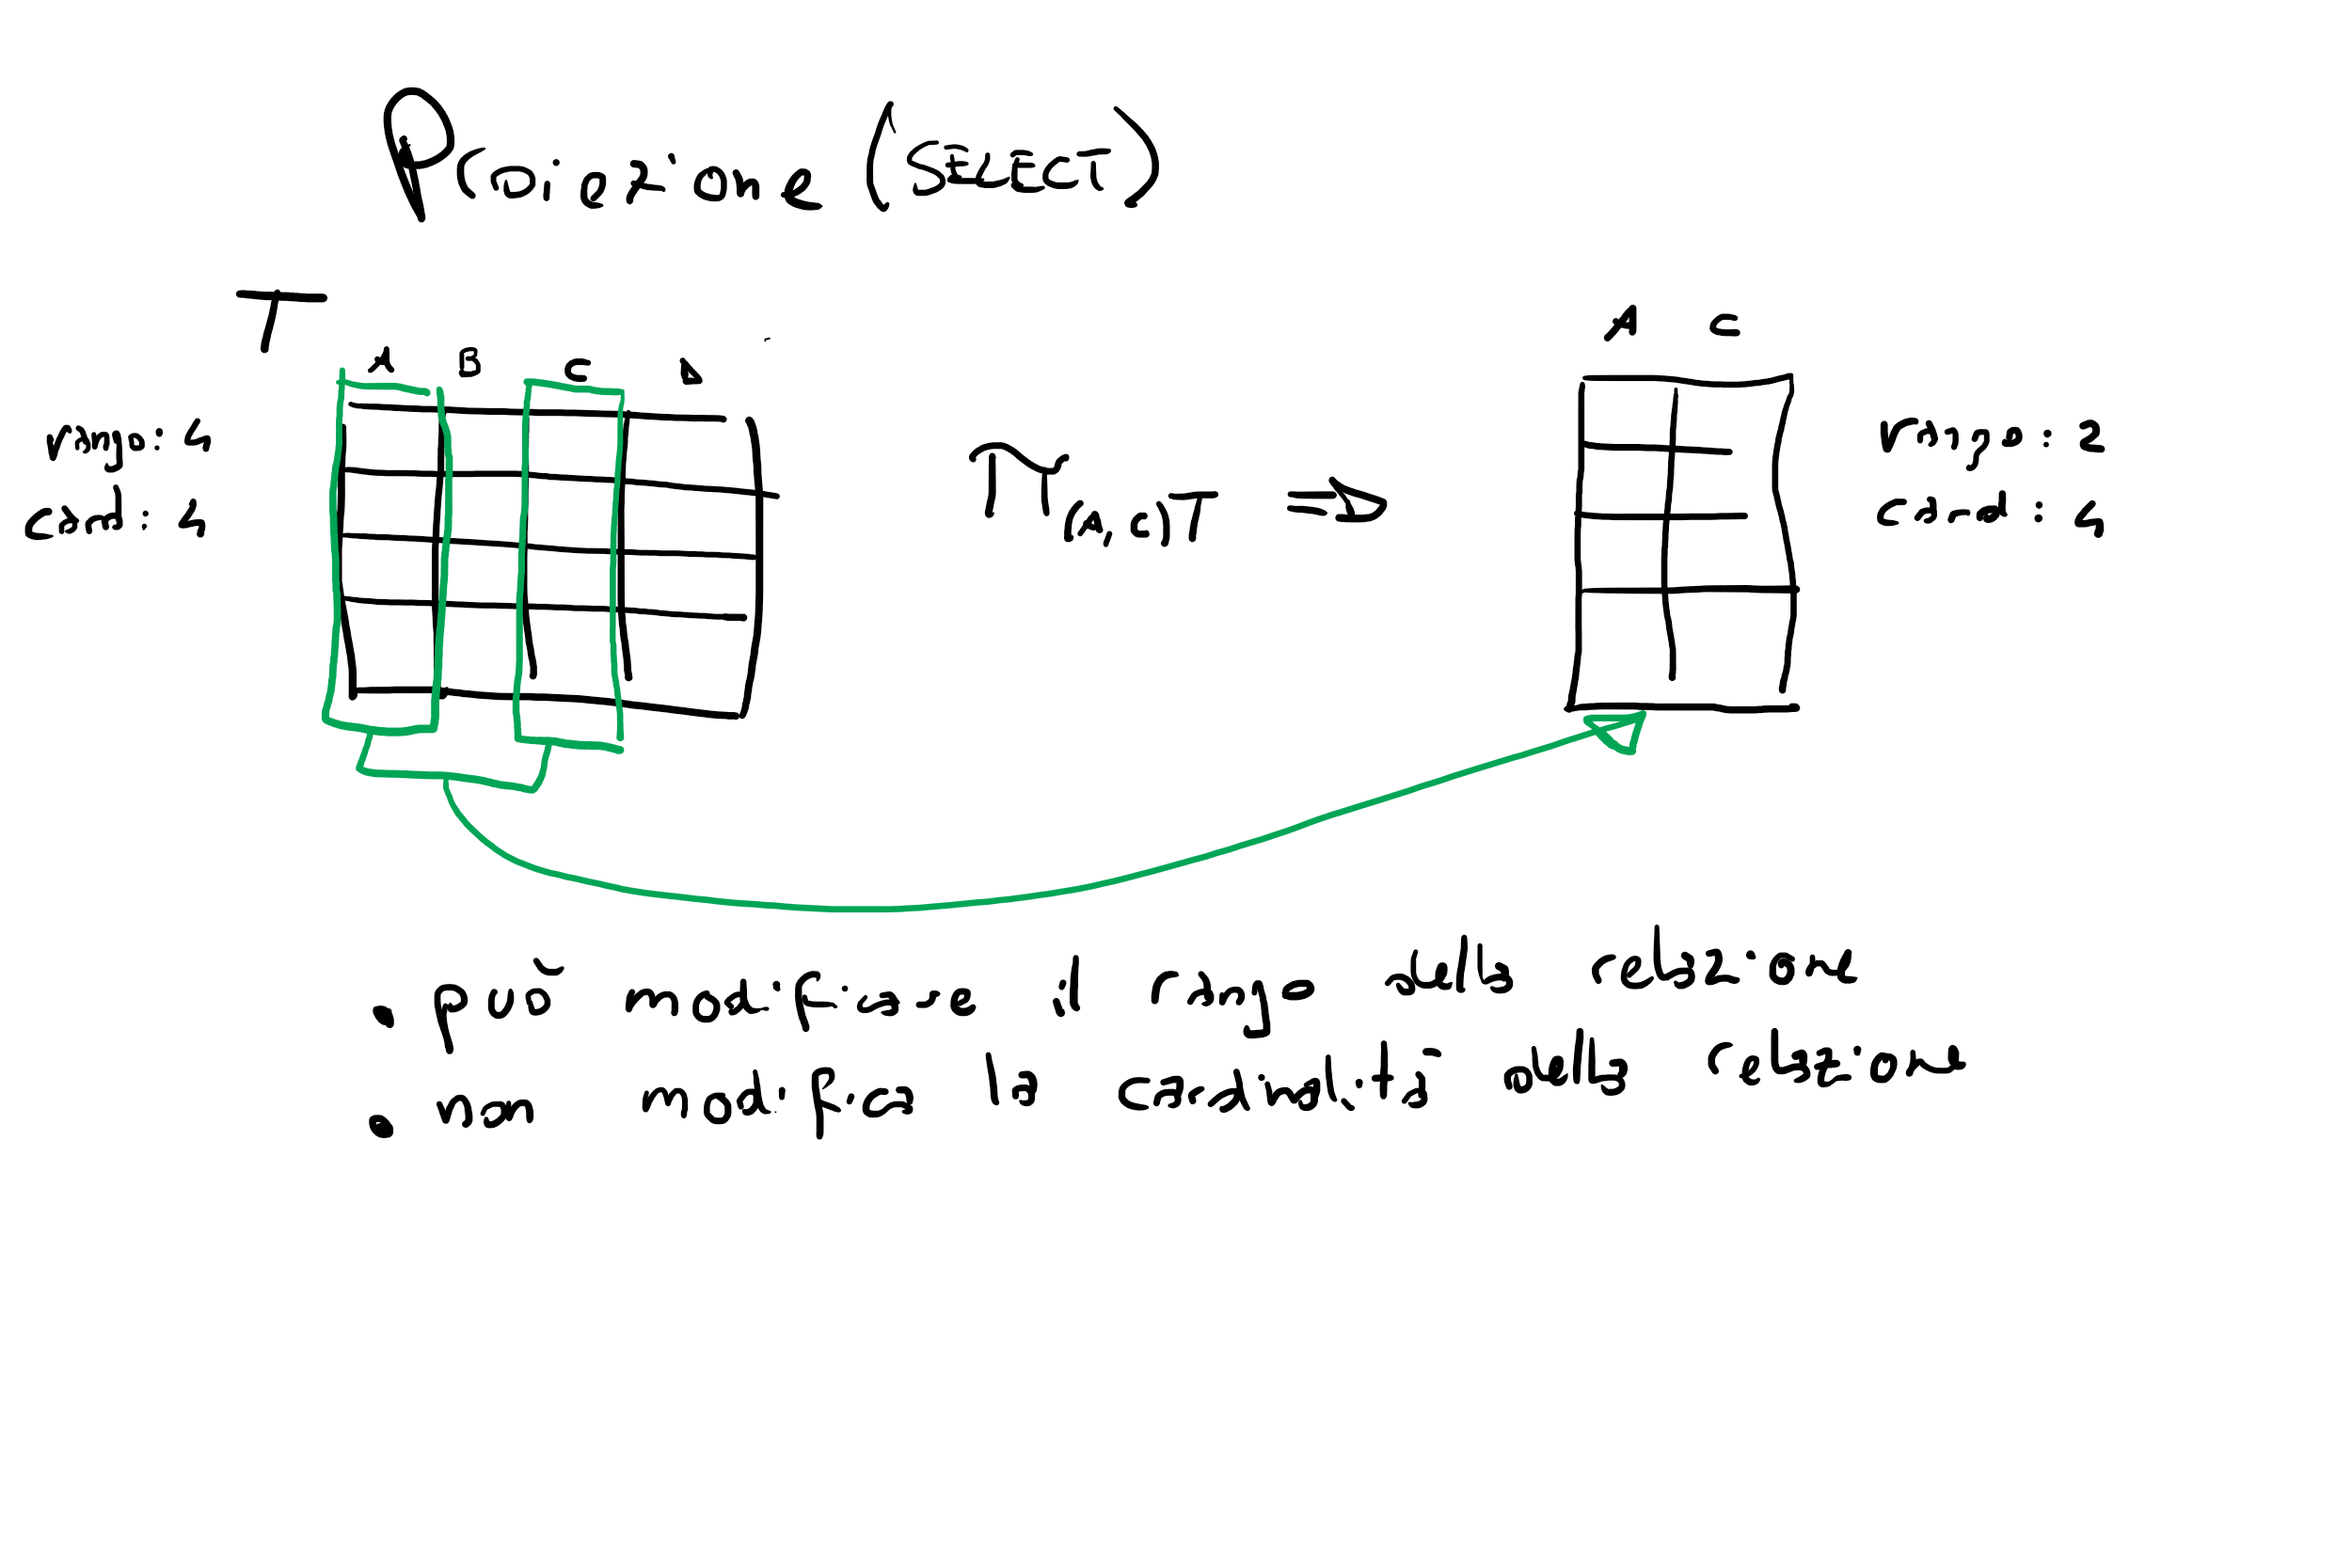 Proiezione (SELECT)
T
A B C D
rango: 4
card: 4
π(A,C)T ⇒
A C
rango: 2
card: 4
• può modificare il rango della relazione
• non modifica la cardinalità della relazione